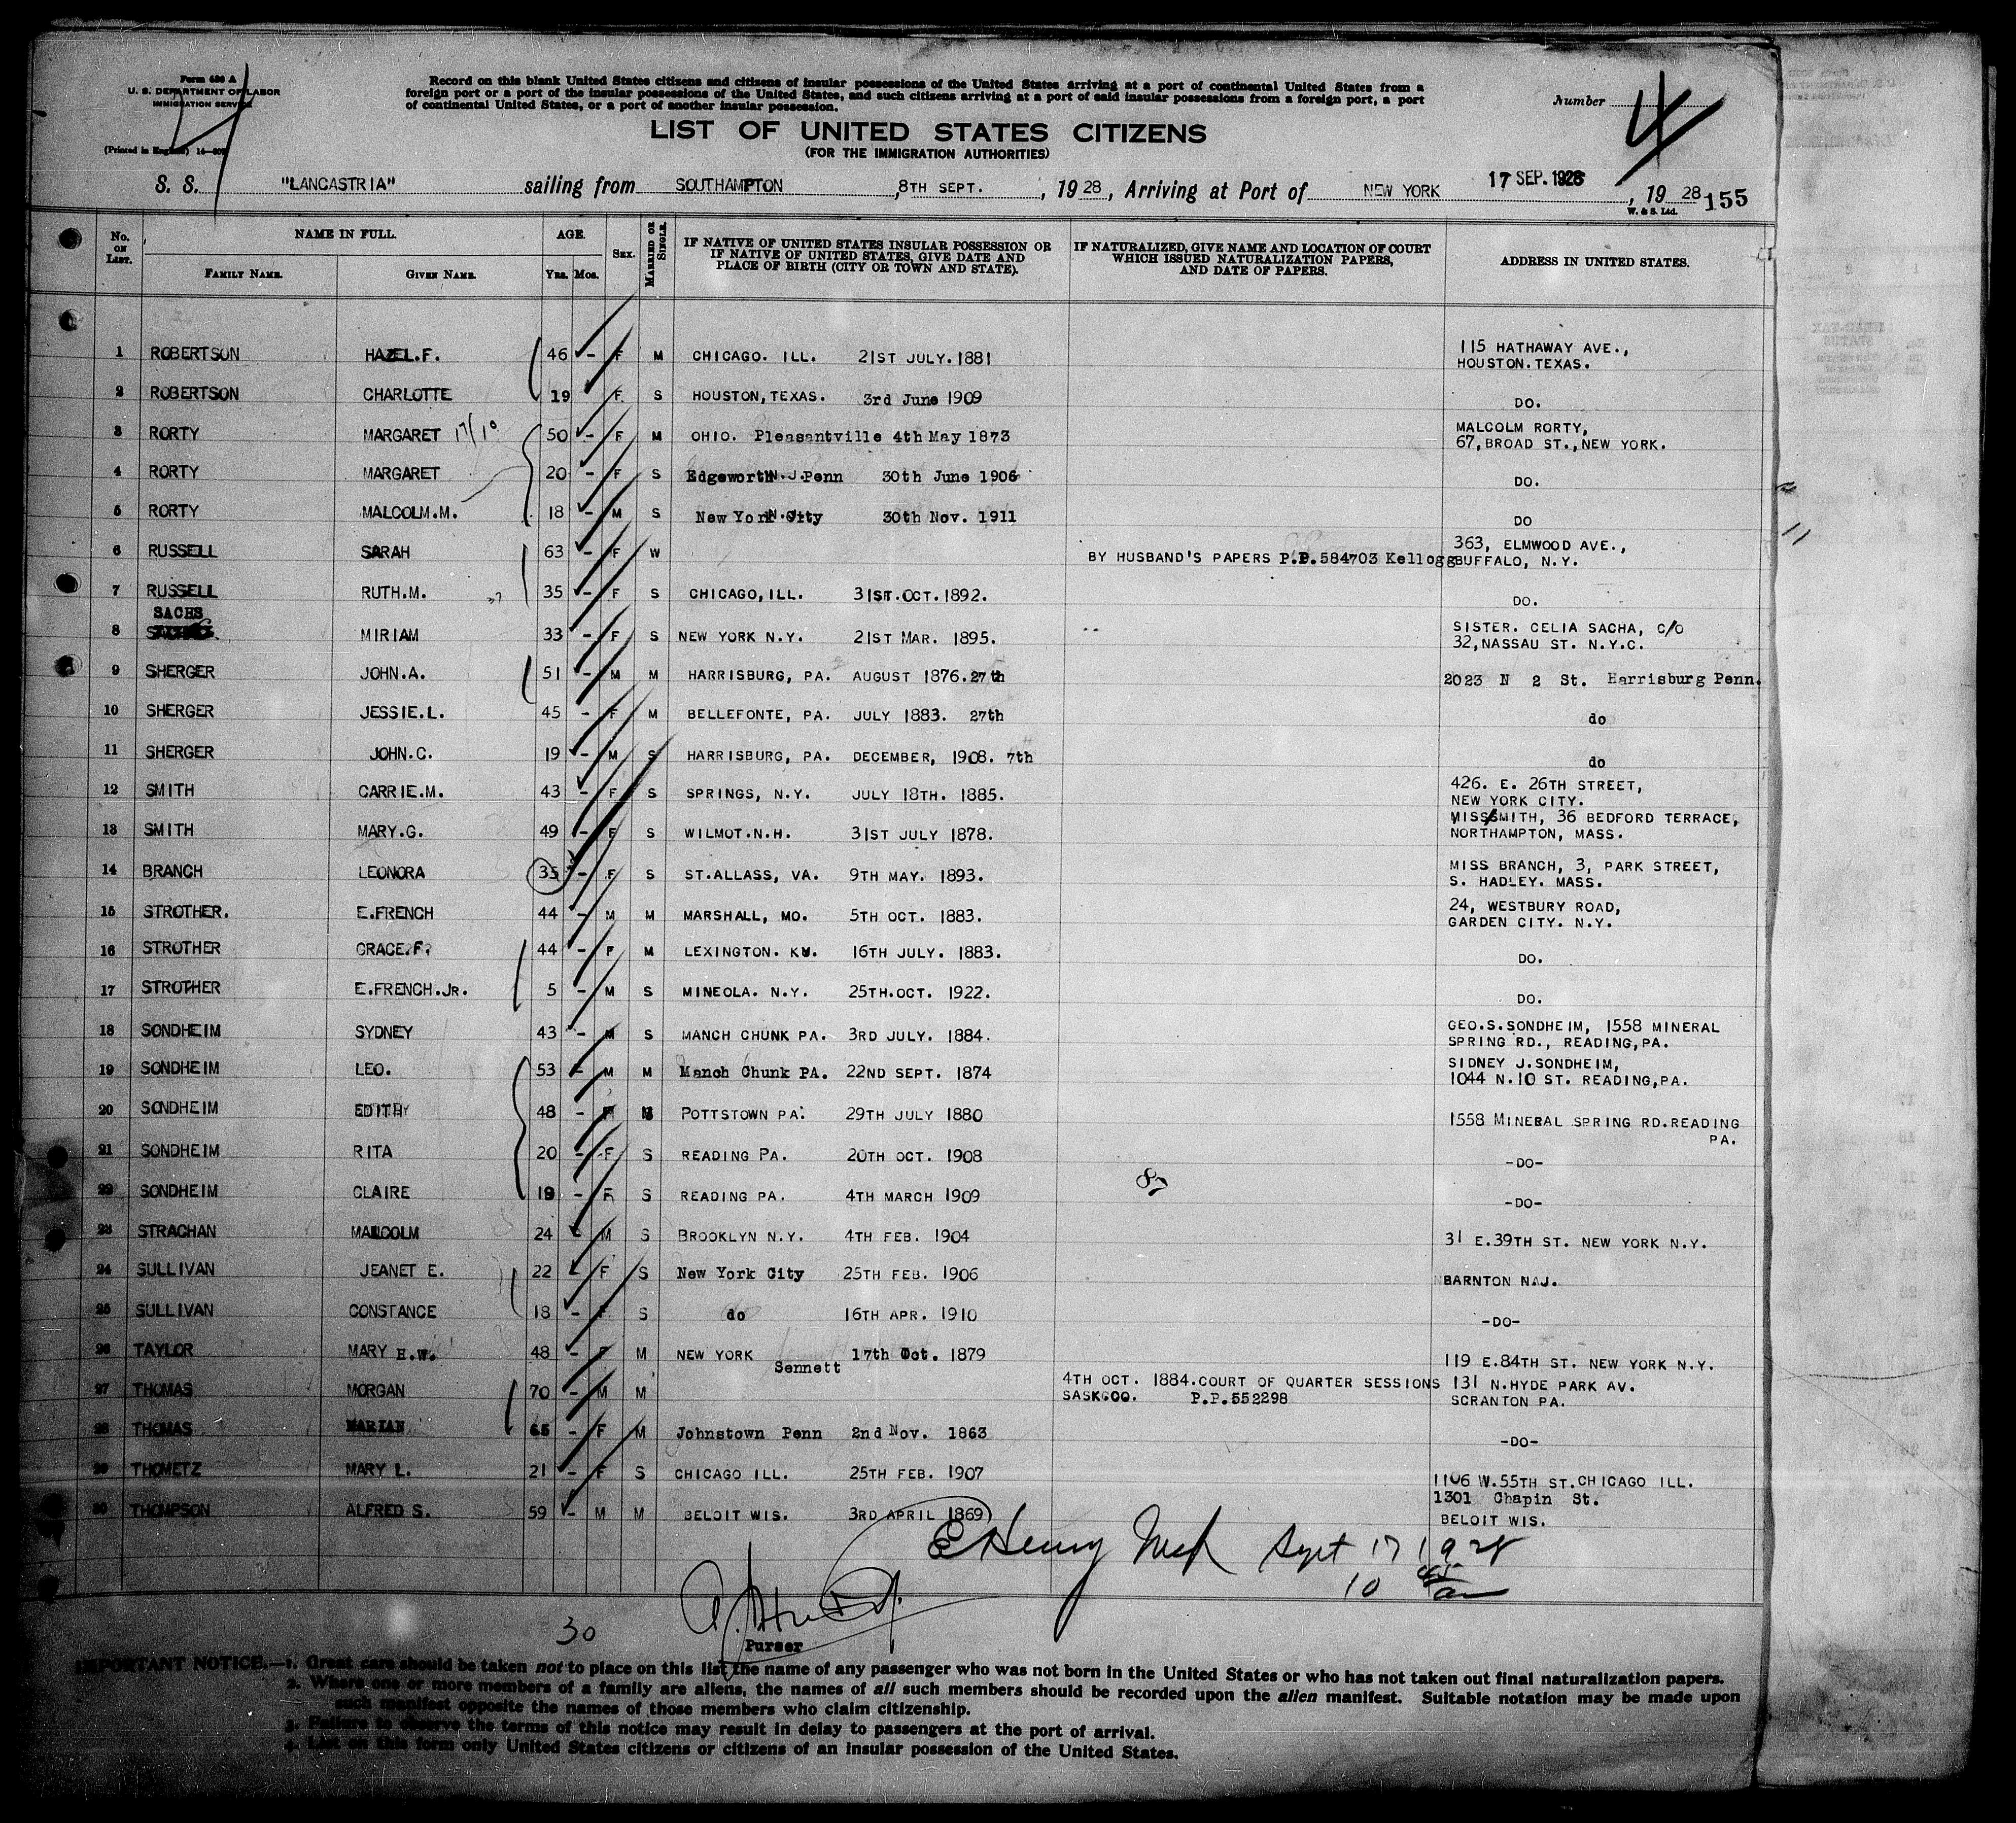 Form 630 A
U. S. DEPARTMENT OF LABOR
IMMIGRATION SERVICE
(Printed in England) 14—
Record on this blank United States citizens and citizens of insular possessions of the United States arriving at a port of continental United States from a
foreign port or a port of the insular possessions of the United States, and such citizens arriving at a port of said insular possessions from a foreign port, a port
of continental United States, or a port of another insular possession.
Number
4
LIST OF UNITED STATES CITIZENS
(FOR THE IMMIGRATION AUTHORITIES)
S. S. "LANCASTRIA" sailing from SOUTHAMPTON, 8TH SEPT., 1928, Arriving at Port of NEW YORK 17 SEP. 1928, 1928 155
W. & S. Ltd.
No. ON LIST. NAME IN FULL. FAMILY NAME. GIVEN NAME. AGE. YRS. MOS. SEX. MARRIED OR SINGLE. IF NATIVE OF UNITED STATES INSULAR POSSESSION OR IF NATIVE OF UNITED STATES, GIVE DATE AND PLACE OF BIRTH (CITY OR TOWN AND STATE). IF NATURALIZED, GIVE NAME AND LOCATION OF COURT WHICH ISSUED NATURALIZATION PAPERS, AND DATE OF PAPERS. ADDRESS IN UNITED STATES.
1 ROBERTSON HAZEL.F. 46 - F M CHICAGO. ILL. 21ST JULY.1881 115 HATHAWAY AVE., HOUSTON.TEXAS.
2 ROBERTSON CHARLOTTE 19 F S HOUSTON,TEXAS. 3rd June 1909 DO.
3 RORTY MARGARET 17/10 50 - F M OHIO. Pleasantville 4th May 1873 MALCOLM RORTY, 67,BROAD ST.,NEW YORK.
4 RORTY MARGARET 20 - F S Edgeworth Penn 30th June 1906 DO.
5 RORTY MALCOLM.M. 18 - M S New York City 30th Nov. 1911 DO
6 RUSSELL SARAH 63 - F W BY HUSBAND'S PAPERS P.P.584703 Kellogg 363, ELMWOOD AVE., BUFFALO, N.Y.
7 RUSSELL RUTH.M. 35 - F S CHICAGO,ILL. 31ST.OCT.1892. DO.
8 SACHS MIRIAM 33 - F S NEW YORK N.Y. 21ST MAR. 1895. SISTER. CELIA SACHA, C/O 32,NASSAU ST. N.Y.C.
9 SHERGER JOHN.A. 51 - M M HARRISBURG, PA. AUGUST 1876.27th 2023 N 2 St. Harrisburg Penn.
10 SHERGER JESSIE.L. 45 - F M BELLEFONTE, PA. JULY 1883. 27th do
11 SHERGER JOHN.C. 19 - M S HARRISBURG, PA. DECEMBER, 1908. 7th do
12 SMITH CARRIE.M. 43 - F S SPRINGS, N.Y. JULY 18TH. 1885. 426. E. 26TH STREET, NEW YORK CITY.
13 SMITH MARY.G. 49 - F S WILMOT.N.H. 31ST JULY 1878. MISS SMITH, 36 BEDFORD TERRACE, NORTHAMPTON, MASS.
14 BRANCH LEONORA 35 - F S ST.ALLASS, VA. 9TH MAY. 1893. MISS BRANCH, 3, PARK STREET, S. HADLEY. MASS.
15 STROTHER. E.FRENCH 44 - M M MARSHALL, MO. 5TH OCT. 1883. 24, WESTBURY ROAD, GARDEN CITY. N.Y.
16 STROTHER GRACE.F. 44 - F M LEXINGTON. KY. 16TH JULY. 1883. DO.
17 STROTHER E.FRENCH.JR. 5 - M S MINEOLA. N.Y. 25TH.OCT. 1922. DO.
18 SONDHEIM SYDNEY 43 - M S MANCH CHUNK PA. 3RD JULY. 1884. GEO.S.SONDHEIM, 1558 MINERAL SPRING RD., READING,PA.
19 SONDHEIM LEO. 53 - M M Manch Chunk PA. 22ND SEPT. 1874 SIDNEY J.SONDHEIM, 1044 N.10 ST. READING,PA.
20 SONDHEIM EDITH 48 - F M POTTSTOWN PA. 29TH JULY 1880 1558 MINERAL SPRING RD.READING PA.
21 SONDHEIM RITA 20 - F S READING PA. 20TH OCT. 1908 -DO-
22 SONDHEIM CLAIRE 19 - F S READING PA. 4TH MARCH 1909 -DO-
23 STRACHAN MALCOLM 24 - M S BROOKLYN N.Y. 4TH FEB. 1904 31 E.39TH ST. NEW YORK N.Y.
24 SULLIVAN JEANET E. 22 - F S New York City 25TH FEB. 1906 BARNTON N.J.
25 SULLIVAN CONSTANCE 18 - F S do 16TH APR. 1910 -DO-
26 TAYLOR MARY H.W. 48 - F M NEW YORK Sennett 17th Oct. 1879 119 E.84TH ST. NEW YORK N.Y.
27 THOMAS MORGAN 70 - M M 4TH OCT. 1884.COURT OF QUARTER SESSIONS SASKGOO. P.P.552298 131 N.HYDE PARK AV. SCRANTON PA.
28 THOMAS MARIAN 65 - F M Johnstown Penn 2nd Nov. 1863 -DO-
29 THOMETZ MARY L. 21 - F S CHICAGO ILL. 25TH FEB. 1907 1106 W.55TH ST.CHICAGO ILL.
30 THOMPSON ALFRED S. 59 - M M BELOIT WIS. 3RD APRIL 1869 1301 Chapin St. BELOIT WIS.
Henry Sept 17 1928
10 am
30
Purser
IMPORTANT NOTICE.—1. Great care should be taken not to place on this list the name of any passenger who was not born in the United States or who has not taken out final naturalization papers.
2. Where one or more members of a family are aliens, the names of all such members should be recorded upon the alien manifest. Suitable notation may be made upon
such manifest opposite the names of those members who claim citizenship.
3. Failure to observe the terms of this notice may result in delay to passengers at the port of arrival.
4. List on this form only United States citizens or citizens of an insular possession of the United States.